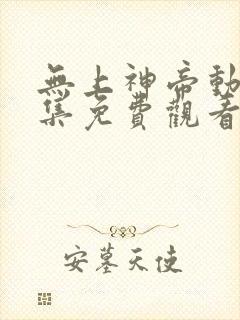 無上神帝動
集免費觀看
安墓天使